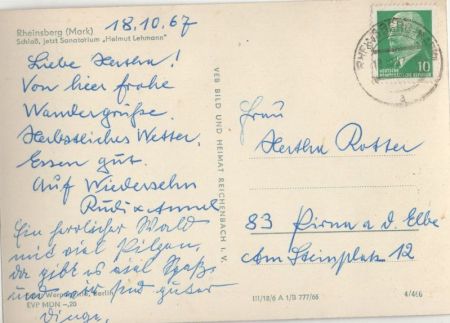 Rheinsberg (Mark)
Schloß, jetzt Sanatorium „Helmut Lehmann"
18.10.67
Liebe Hertha!
Von hier frohe
Wandergrüße.
Herbstliches Wetter,
Essen gut.
Auf Wiedersehn
Rudi + Annel
Ein herrlicher Wald
mit viel Pilzen,
da gibt es viel Spaß
und wir sind guter
Dinge.
Berlin
EVP MDN -,20
VEB BILD UND HEIMAT REICHENBACH I. V.
10
DEUTSCHE
DEMOKRATISCHE REPUBLIK
RHEINSBERG
a
Frau
Hertha Rotter
83 Pirna a. d. Elbe
Am Steinplatz 12
III/18/6 A 1/B 777/66
4/466